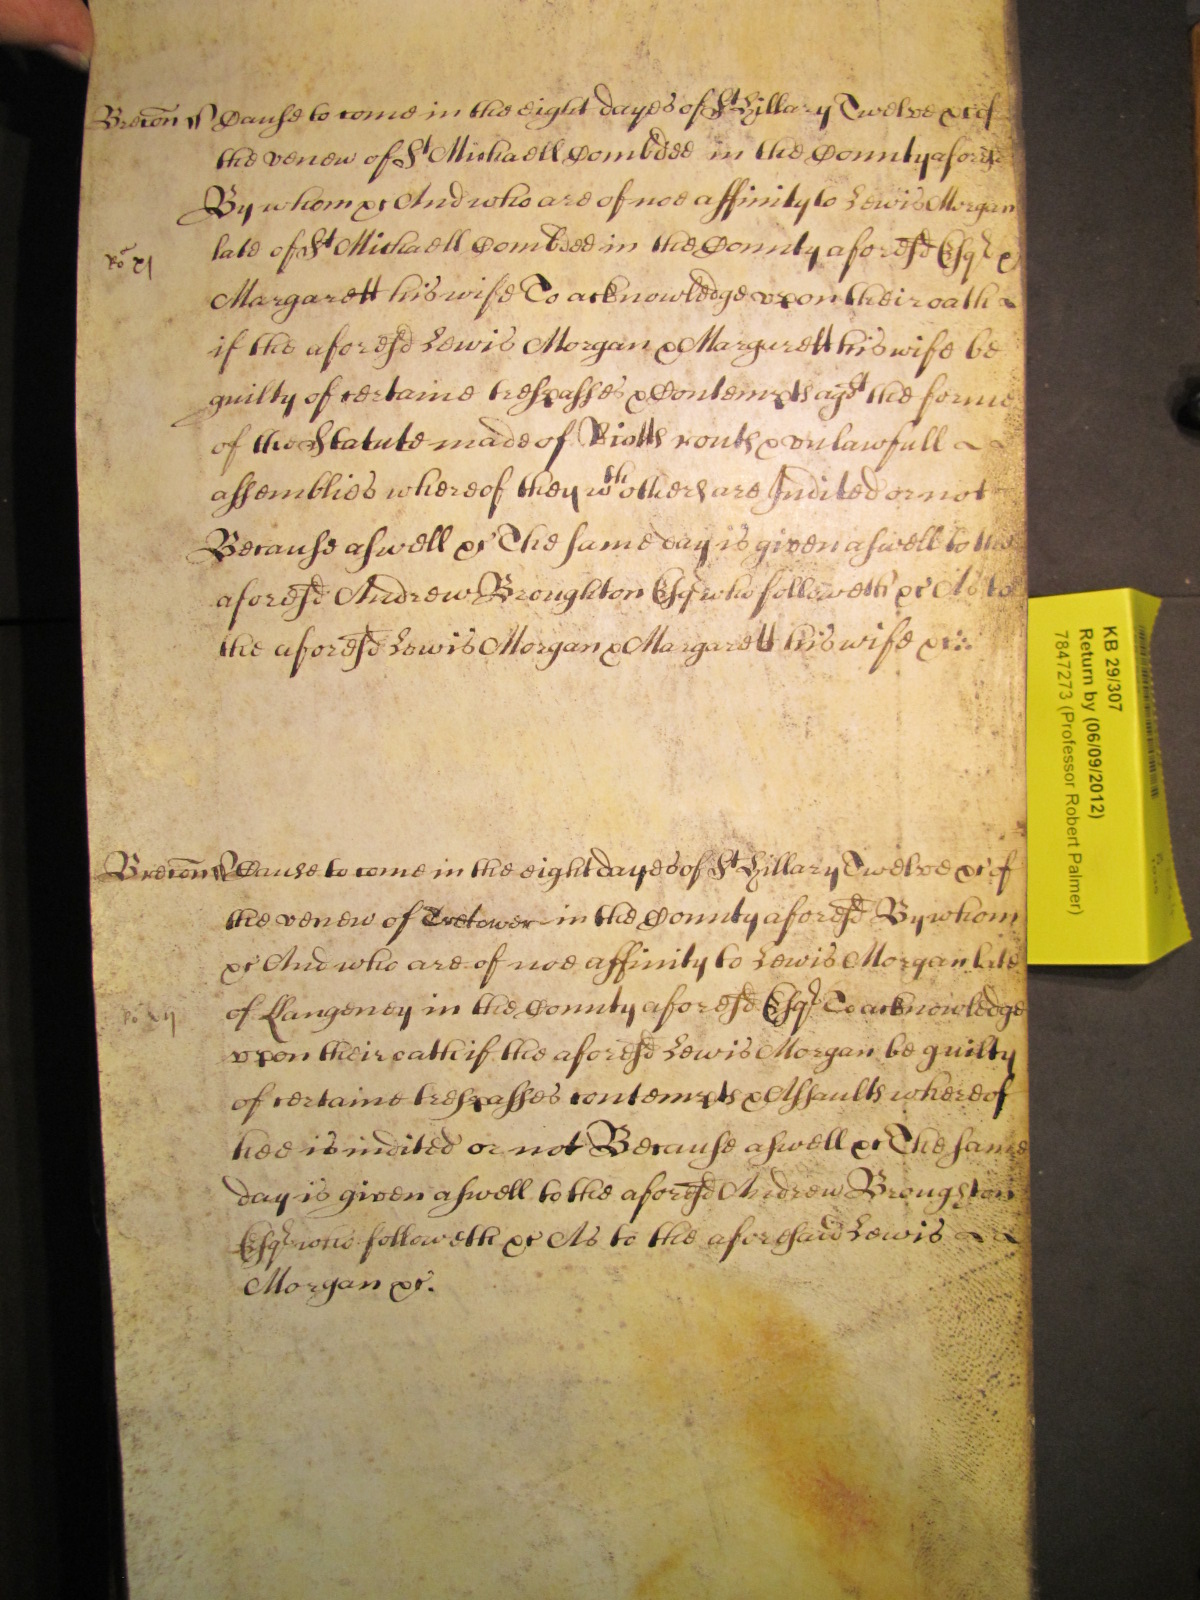 Brecon ss Cause to come in the eight dayes of St Hillary Twelve &c of
the venew of St Michaell Combdee in the County aforesd
By whom &c And who are of noe affinity to Lewis Morgan
late of St Michaell Combdee in the County aforesd Esqr &
Ro xj
Margarett his wife To acknowledge vpon their oath
if the aforesd Lewis Morgan & Margarett his wife be
guilty of certaine trespasses & Contempts agst the forme
of the Statute made of Riotts routs & vnlawfull
assemblies whereof they wth others are Indited or not
Because aswell &c The same day is given aswell to the
aforesd Andrew Broughton Esqr who followeth &c As to
the aforesd Lewis Morgan & Margarett his wife &c
Brecon ss Cause to come in the eight dayes of St Hillary Twelve &c of
the venew of Tretower in the County aforesd By whom
&c And who are of noe affinity to Lewis Morgan late
of Llangeney in the County aforesd Esqr To acknowledge
vpon their oath if the aforesd Lewis Morgan be guilty
of certaine trespasses contempts & Assaults whereof
hee is indited or not Because aswell &c The same
day is given aswell to the aforesd Andrew Broughton
Esqr who followeth &c As to the aforesaid Lewis
Morgan &c.
KB 29/307
Return by (06/09/2012)
7847273 (Professor Robert Palmer)